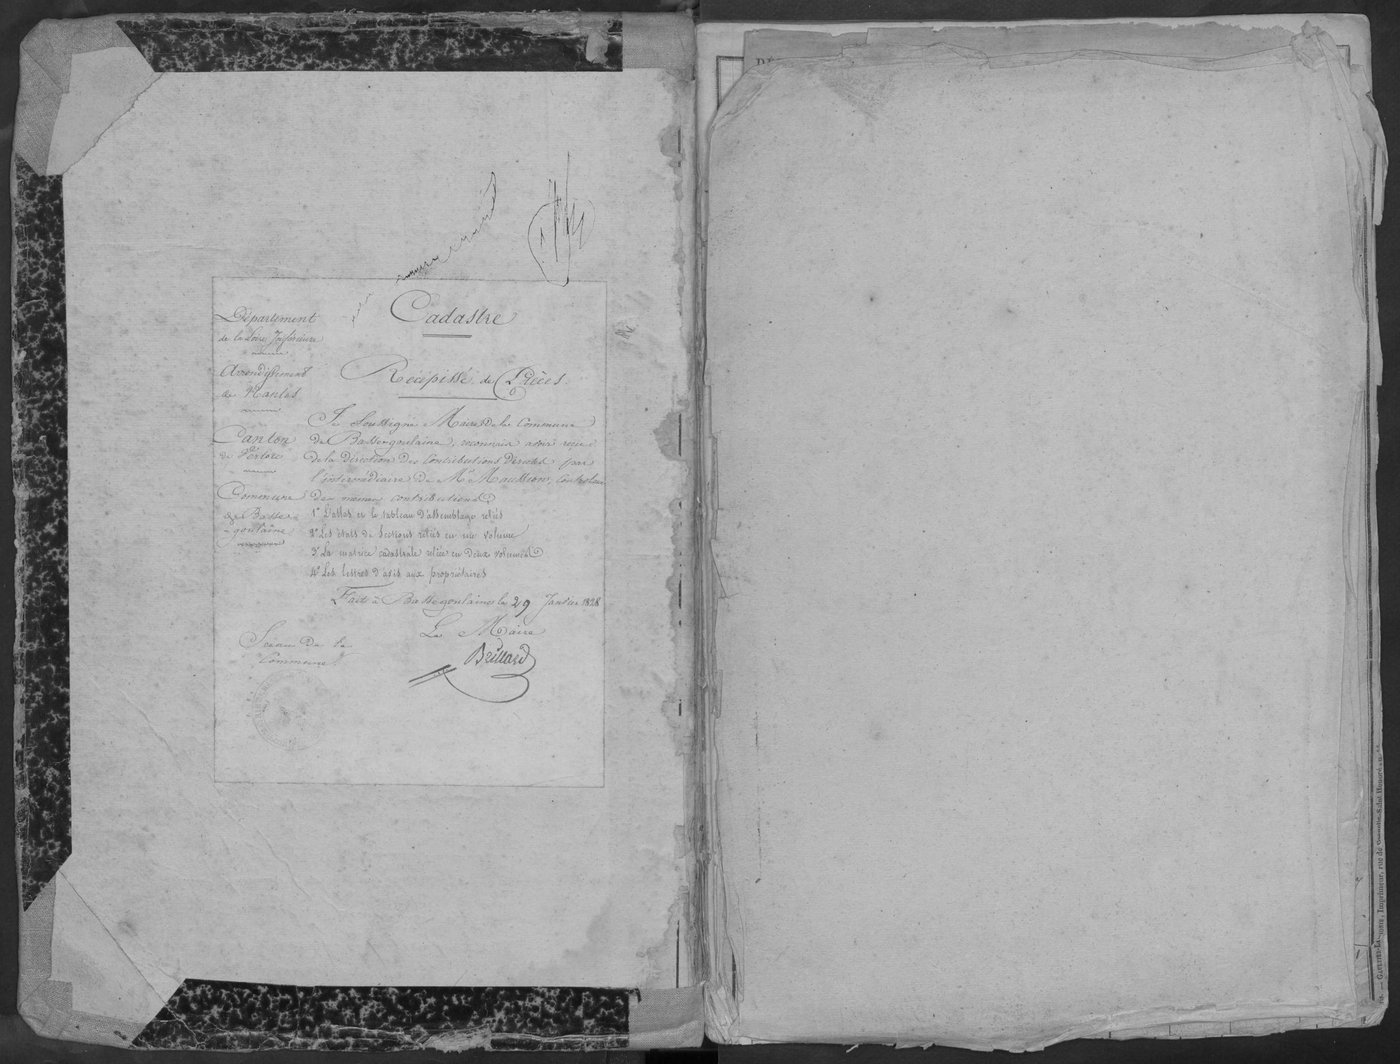 Département
de la Loire Inférieure
Arrondissement
de Nantes
Canton
de Vertou
Commune
de Basse-
goulaine
Cadastre
Récépissé de Pièces
Je Soussigné Maire de la Commune
de Bassegoulaine, reconnais avoir reçu
de la direction des Contributions Directes par
l'intermédiaire de Mr Maussion, Controleur
des mêmes contributions
1º L'atlas et le tableau d'assemblage reliés
2º Les états de Sections reliés en un volume
3º La matrice cadastrale reliée en deux volumes
4º Les lettres d'avis aux propriétaires
Fait à Bassegoulaine le 29 Janvier 1828
Le Maire
Brillard
Sceau de la
Commune
Imprimeur, rue de